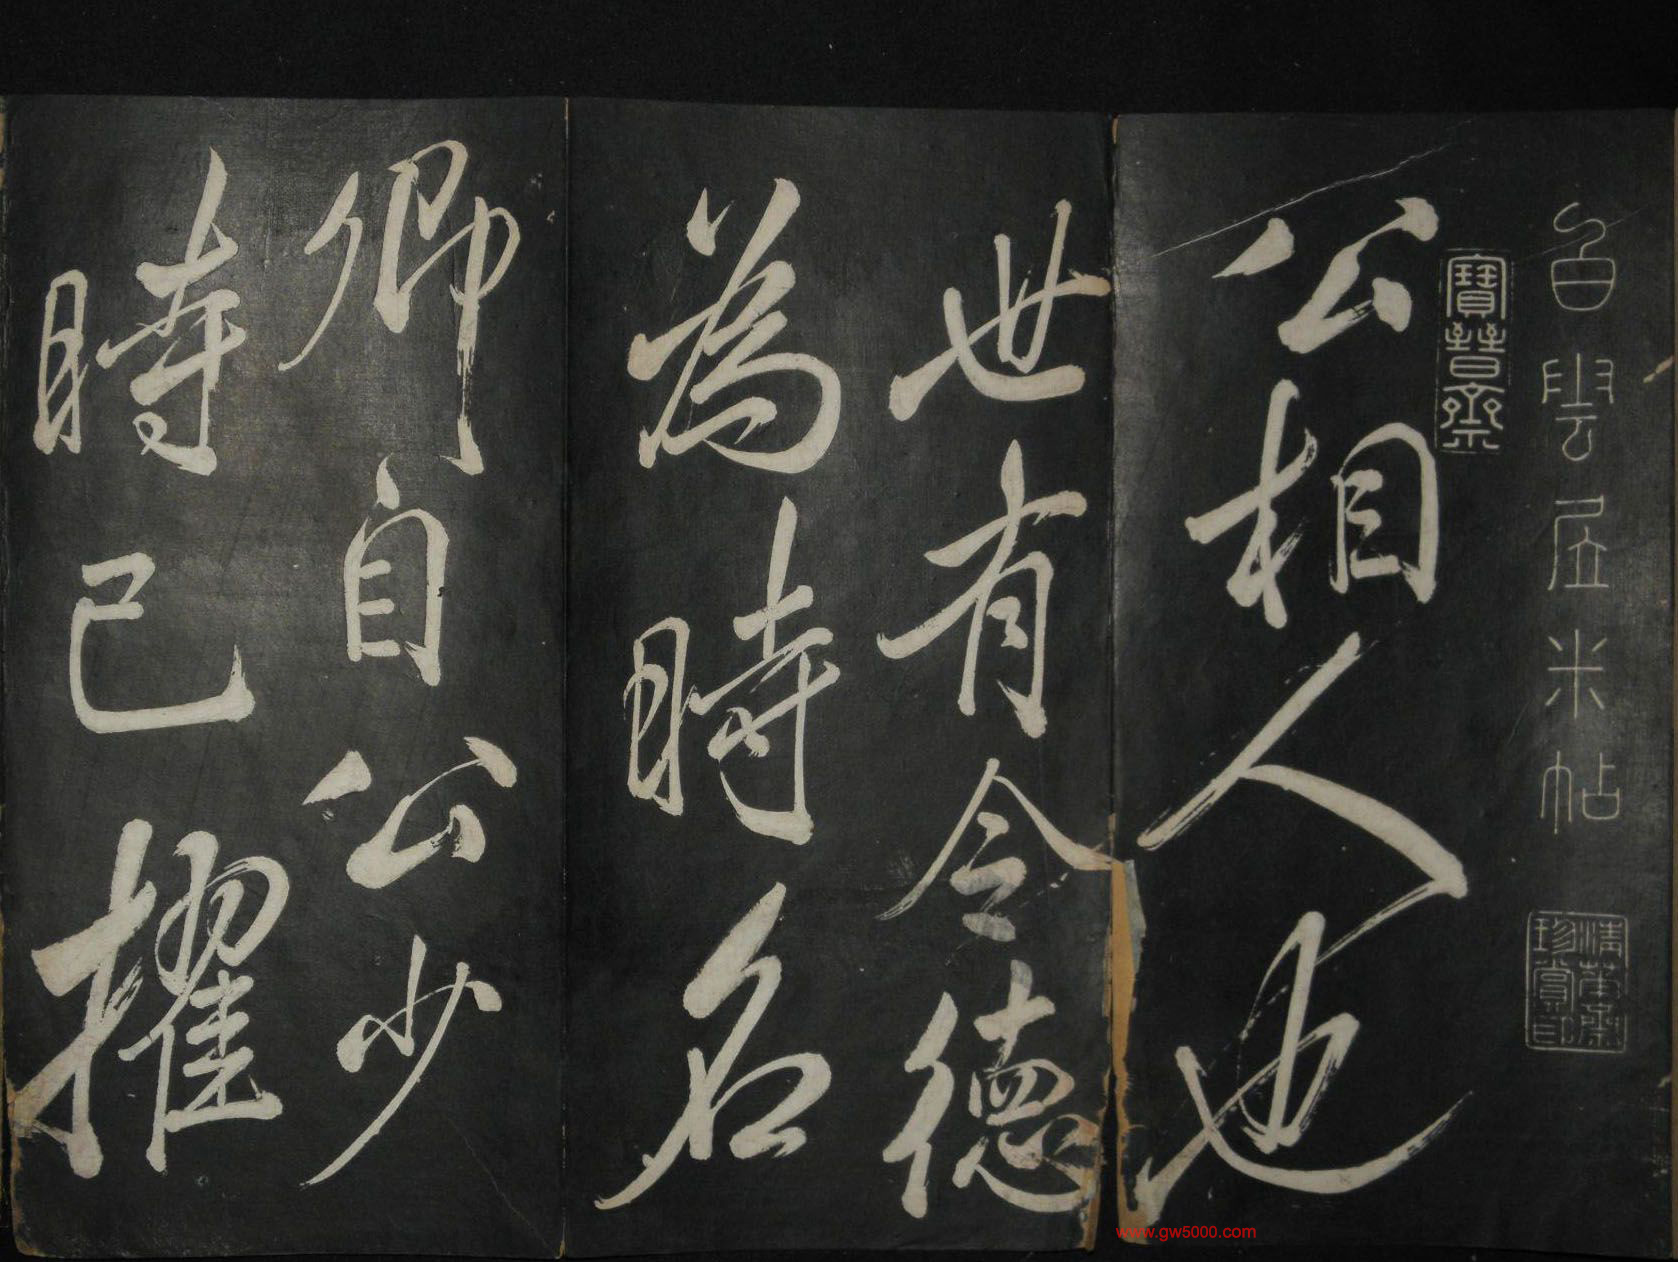 白雲居米帖
寶晉齋
清華齋珍賞印
公相人也
世有令德
為時名
卿自公少
時已擢
www.gw5000.com